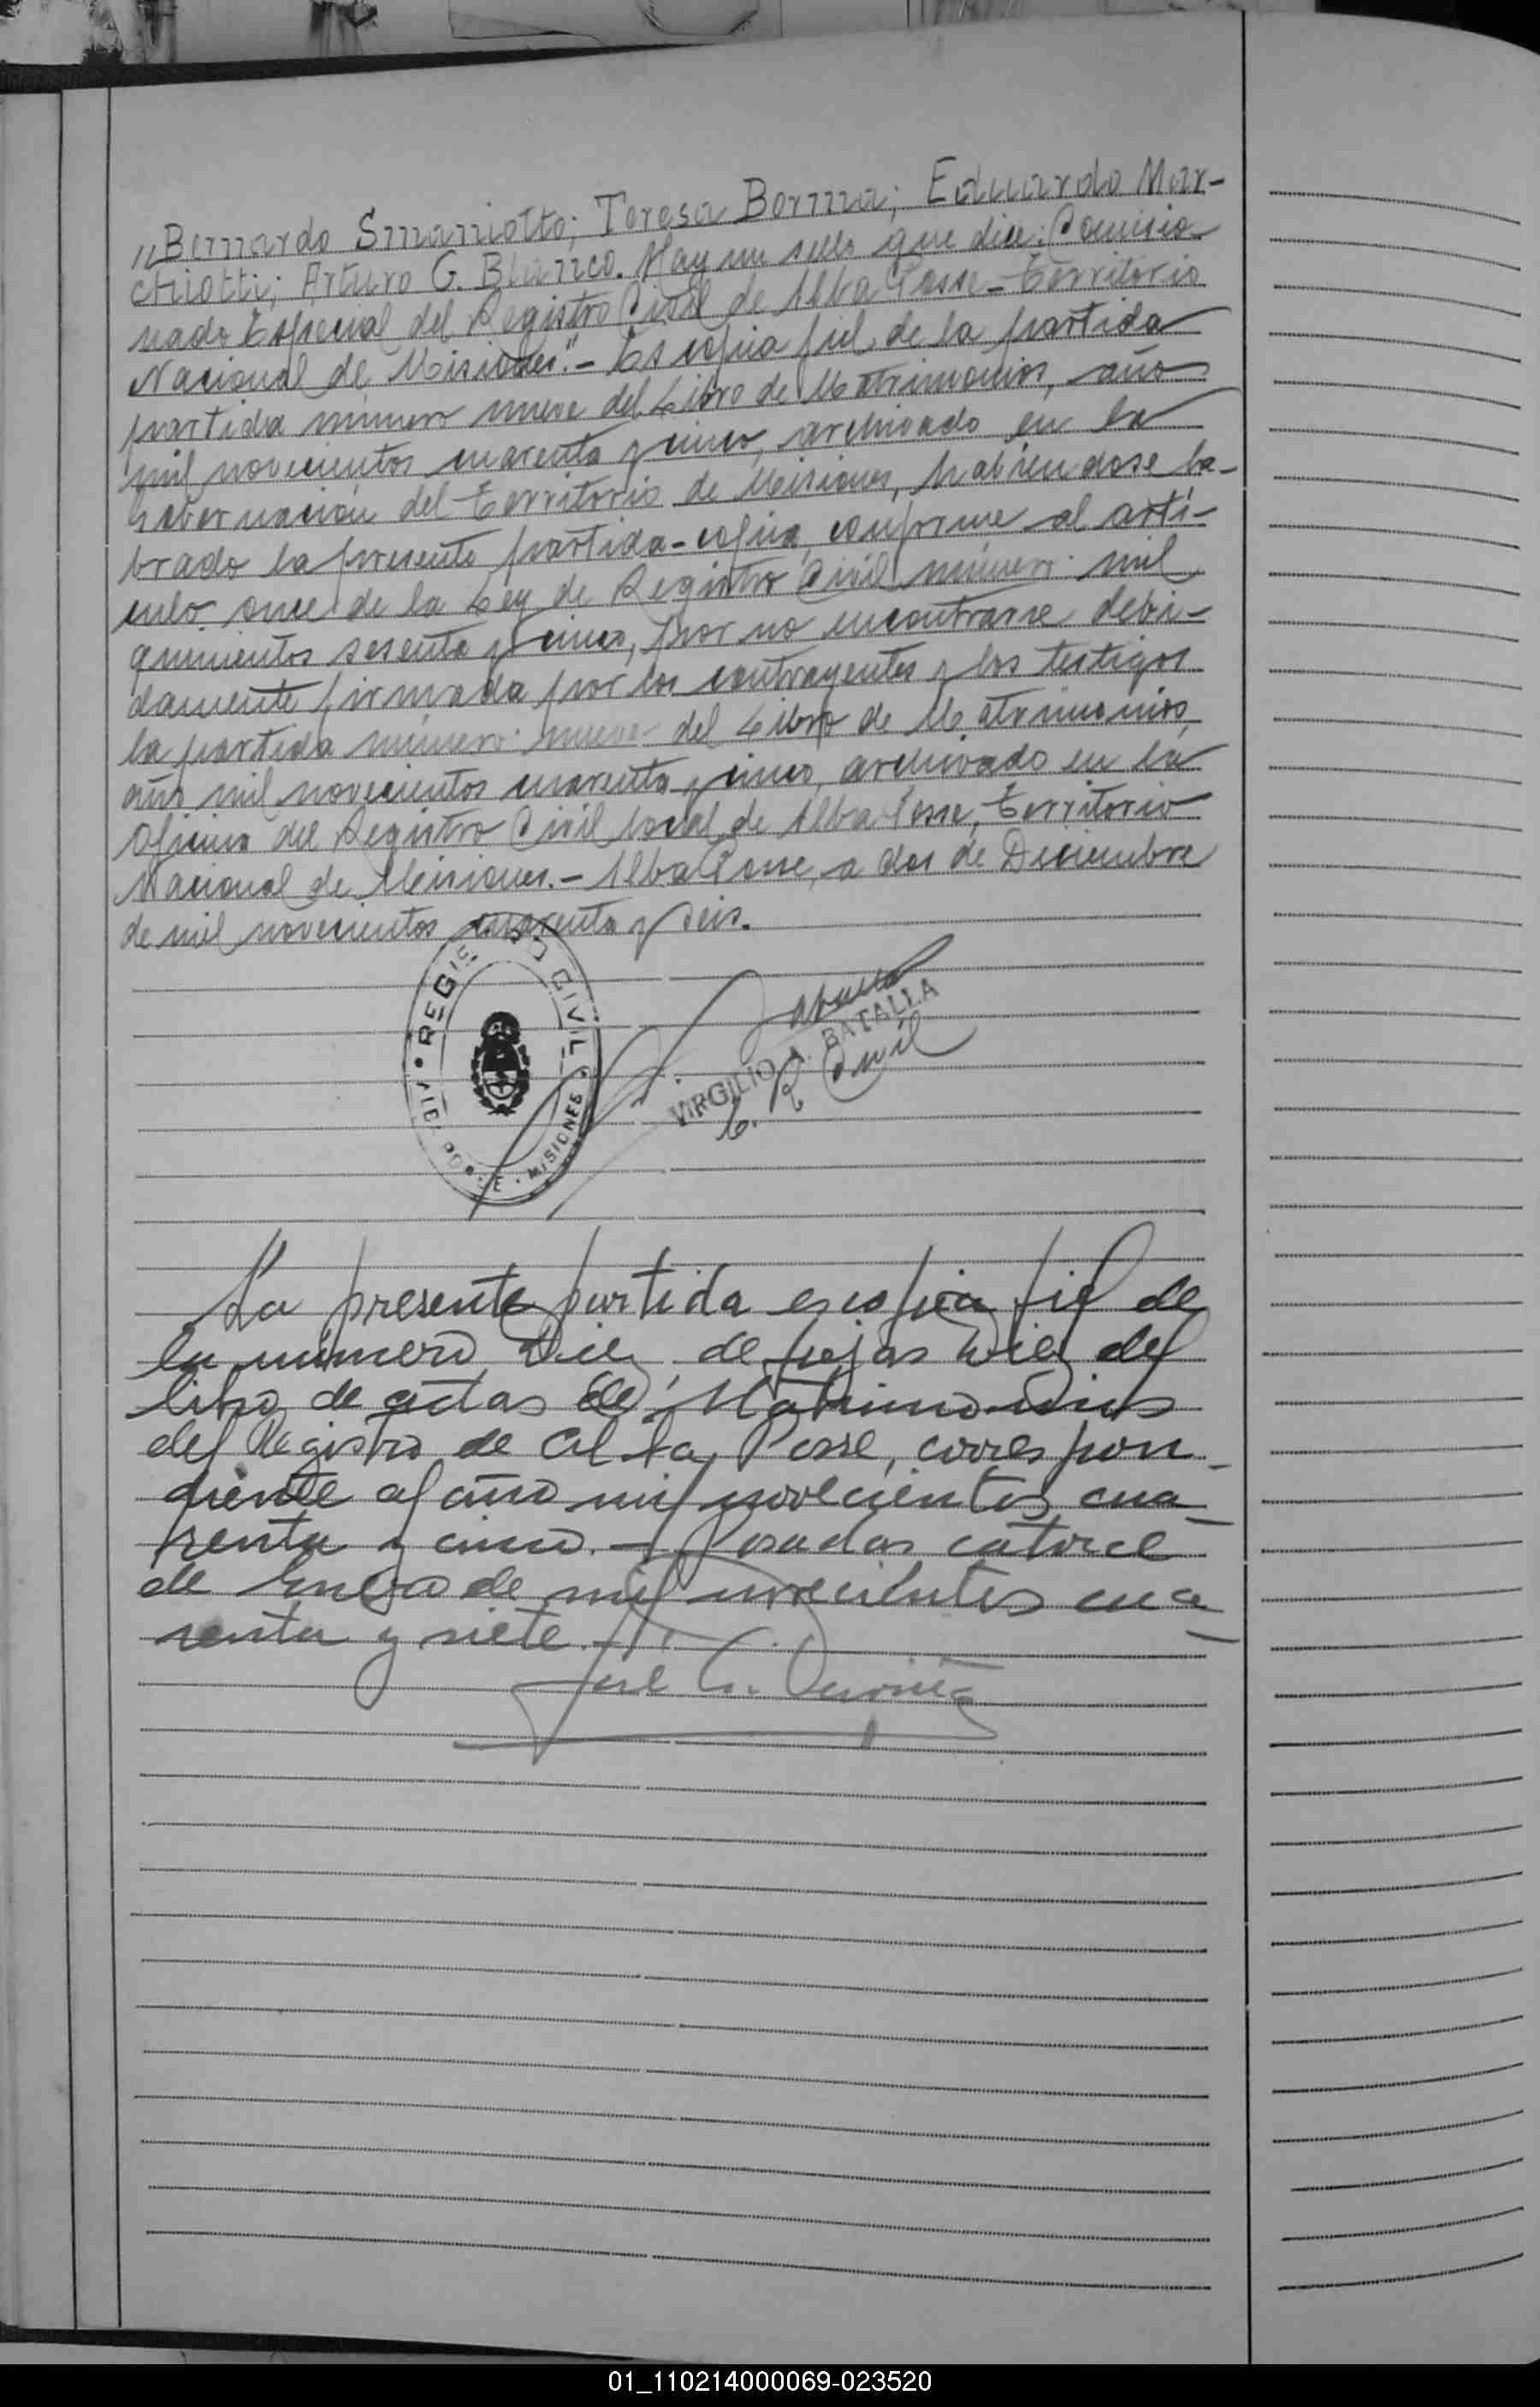 "Bernardo Smaniotto; Teresa Berna; Eduardo Mar-
chiotti; Arturo G. Blanco. Hay un sello que dice: Comisio-
nado Especial del Registro Civil de Alba Posse - Territorio
Nacional de Misiones".- Es copia fiel de la partida
partida número nueve del Libro de Matrimonios, año
mil novecientos cuarenta y cinco, archivado en la
Gobernación del Territorio de Misiones, habiendose la-
brado la presente partida-copia, conforme al artí-
culo once de la Ley de Registro Civil número mil
quinientos sesenta y cinco, por no encontrarse debi-
damente firmada por los contrayentes y los testigos
la partida número nueve del Libro de Matrimonios,
año mil novecientos cuarenta y cinco, archivado en la
Oficina del Registro Civil local de Alba Posse, Territorio
Nacional de Misiones.- Alba Posse, a dos de Diciembre
de mil novecientos cuarenta y seis.
REGISTRO CIVIL
ALBA POSSE · MISIONES
VIRGILIO A. BATALLA
E. R. Civil
La presente partida es copia fiel de
la número Diez, de fojas Diez del
libro de actas de Matrimonios
del Registro de Alba Posse, correspon-
diente al año mil novecientos cua-
renta y cinco.- Posadas catorce
de Enero de mil novecientos cua-
renta y siete.-
José
01_110214000069-023520